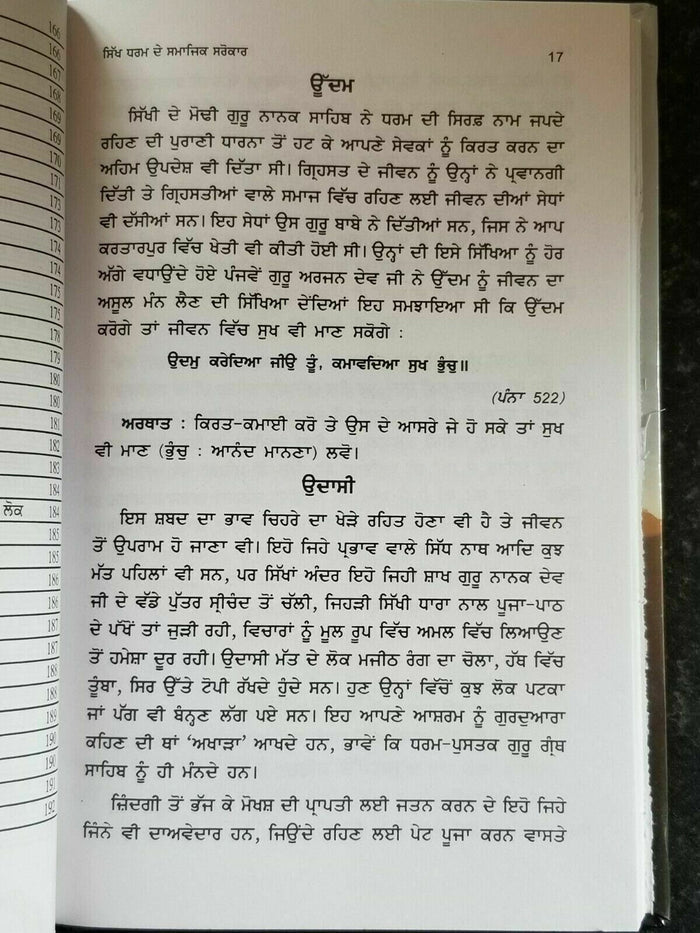 166
166
167
168
169
169
170
171
173
173
174
174
175
175
178
179
180
180
181
182
183
184
ਲੋਕ 184
185
185
186
186
187
187
188
188
189
190
190
191
192
ਸਿੱਖ ਧਰਮ ਦੇ ਸਮਾਜਿਕ ਸਰੋਕਾਰ 17
ਊੱਦਮ
ਸਿੱਖੀ ਦੇ ਮੋਢੀ ਗੁਰੂ ਨਾਨਕ ਸਾਹਿਬ ਨੇ ਧਰਮ ਦੀ ਸਿਰਫ਼ ਨਾਮ ਜਪਦੇ
ਰਹਿਣ ਦੀ ਪੁਰਾਣੀ ਧਾਰਨਾ ਤੋਂ ਹਟ ਕੇ ਆਪਣੇ ਸੇਵਕਾਂ ਨੂੰ ਕਿਰਤ ਕਰਨ ਦਾ
ਅਹਿਮ ਉਪਦੇਸ਼ ਵੀ ਦਿੱਤਾ ਸੀ। ਗ੍ਰਿਹਸਤ ਦੇ ਜੀਵਨ ਨੂੰ ਉਨ੍ਹਾਂ ਨੇ ਪ੍ਰਵਾਨਗੀ
ਦਿੱਤੀ ਤੇ ਗ੍ਰਿਹਸਤੀਆਂ ਵਾਲੇ ਸਮਾਜ ਵਿੱਚ ਰਹਿਣ ਲਈ ਜੀਵਨ ਦੀਆਂ ਸੇਧਾਂ
ਵੀ ਦੱਸੀਆਂ ਸਨ। ਇਹ ਸੇਧਾਂ ਉਸ ਗੁਰੂ ਬਾਬੇ ਨੇ ਦਿੱਤੀਆਂ ਸਨ, ਜਿਸ ਨੇ ਆਪ
ਕਰਤਾਰਪੁਰ ਵਿੱਚ ਖੇਤੀ ਵੀ ਕੀਤੀ ਹੋਈ ਸੀ। ਉਨ੍ਹਾਂ ਦੀ ਇਸੇ ਸਿੱਖਿਆ ਨੂੰ ਹੋਰ
ਅੱਗੇ ਵਧਾਉਂਦੇ ਹੋਏ ਪੰਜਵੇਂ ਗੁਰੂ ਅਰਜਨ ਦੇਵ ਜੀ ਨੇ ਉੱਦਮ ਨੂੰ ਜੀਵਨ ਦਾ
ਅਸੂਲ ਮੰਨ ਲੈਣ ਦੀ ਸਿੱਖਿਆ ਦੇਂਦਿਆਂ ਇਹ ਸਮਝਾਇਆ ਸੀ ਕਿ ਉੱਦਮ
ਕਰੋਗੇ ਤਾਂ ਜੀਵਨ ਵਿੱਚ ਸੁਖ ਵੀ ਮਾਣ ਸਕੋਗੇ :
ਉਦਮੁ ਕਰੇਦਿਆ ਜੀਉ ਤੂੰ, ਕਮਾਵਦਿਆ ਸੁਖ ਭੁੰਚੁ॥
(ਪੰਨਾ 522)
ਅਰਥਾਤ : ਕਿਰਤ-ਕਮਾਈ ਕਰੋ ਤੇ ਉਸ ਦੇ ਆਸਰੇ ਜੇ ਹੋ ਸਕੇ ਤਾਂ ਸੁਖ
ਵੀ ਮਾਣ (ਭੁੰਚੁ : ਆਨੰਦ ਮਾਨਣਾ) ਲਵੋ।
ਉਦਾਸੀ
ਇਸ ਸ਼ਬਦ ਦਾ ਭਾਵ ਚਿਹਰੇ ਦਾ ਖੇੜੇ ਰਹਿਤ ਹੋਣਾ ਵੀ ਹੈ ਤੇ ਜੀਵਨ
ਤੋਂ ਉਪਰਾਮ ਹੋ ਜਾਣਾ ਵੀ। ਇਹੋ ਜਿਹੇ ਪ੍ਰਭਾਵ ਵਾਲੇ ਸਿੱਧ ਨਾਥ ਆਦਿ ਕੁਝ
ਮੱਤ ਪਹਿਲਾਂ ਵੀ ਸਨ, ਪਰ ਸਿੱਖਾਂ ਅੰਦਰ ਇਹੋ ਜਿਹੀ ਸ਼ਾਖ ਗੁਰੂ ਨਾਨਕ ਦੇਵ
ਜੀ ਦੇ ਵੱਡੇ ਪੁੱਤਰ ਸ੍ਰੀਚੰਦ ਤੋਂ ਚੱਲੀ, ਜਿਹੜੀ ਸਿੱਖੀ ਧਾਰਾ ਨਾਲ ਪੂਜਾ-ਪਾਠ
ਦੇ ਪੱਖੋਂ ਤਾਂ ਜੁੜੀ ਰਹੀ, ਵਿਚਾਰਾਂ ਨੂੰ ਮੂਲ ਰੂਪ ਵਿੱਚ ਅਮਲ ਵਿੱਚ ਲਿਆਉਣ
ਤੋਂ ਹਮੇਸ਼ਾ ਦੂਰ ਰਹੀ। ਉਦਾਸੀ ਮੱਤ ਦੇ ਲੋਕ ਮਜੀਠ ਰੰਗ ਦਾ ਚੋਲਾ, ਹੱਥ ਵਿੱਚ
ਤੂੰਬਾ, ਸਿਰ ਉੱਤੇ ਟੋਪੀ ਰੱਖਦੇ ਹੁੰਦੇ ਸਨ। ਹੁਣ ਉਨ੍ਹਾਂ ਵਿੱਚੋਂ ਕੁਝ ਲੋਕ ਪਟਕਾ
ਜਾਂ ਪੱਗ ਵੀ ਬੰਨ੍ਹਣ ਲੱਗ ਪਏ ਸਨ। ਇਹ ਆਪਣੇ ਆਸ਼ਰਮ ਨੂੰ ਗੁਰਦੁਆਰਾ
ਕਹਿਣ ਦੀ ਥਾਂ ‘ਅਖਾੜਾ’ ਆਖਦੇ ਹਨ, ਭਾਵੇਂ ਕਿ ਧਰਮ-ਪੁਸਤਕ ਗੁਰੂ ਗ੍ਰੰਥ
ਸਾਹਿਬ ਨੂੰ ਹੀ ਮੰਨਦੇ ਹਨ।
ਜ਼ਿੰਦਗੀ ਤੋਂ ਭੱਜ ਕੇ ਮੋਖਸ਼ ਦੀ ਪ੍ਰਾਪਤੀ ਲਈ ਜਤਨ ਕਰਨ ਦੇ ਇਹੋ ਜਿਹੇ
ਜਿੰਨੇ ਵੀ ਦਾਅਵੇਦਾਰ ਹਨ, ਜਿਉਂਦੇ ਰਹਿਣ ਲਈ ਪੇਟ ਪੂਜਾ ਕਰਨ ਵਾਸਤੇ